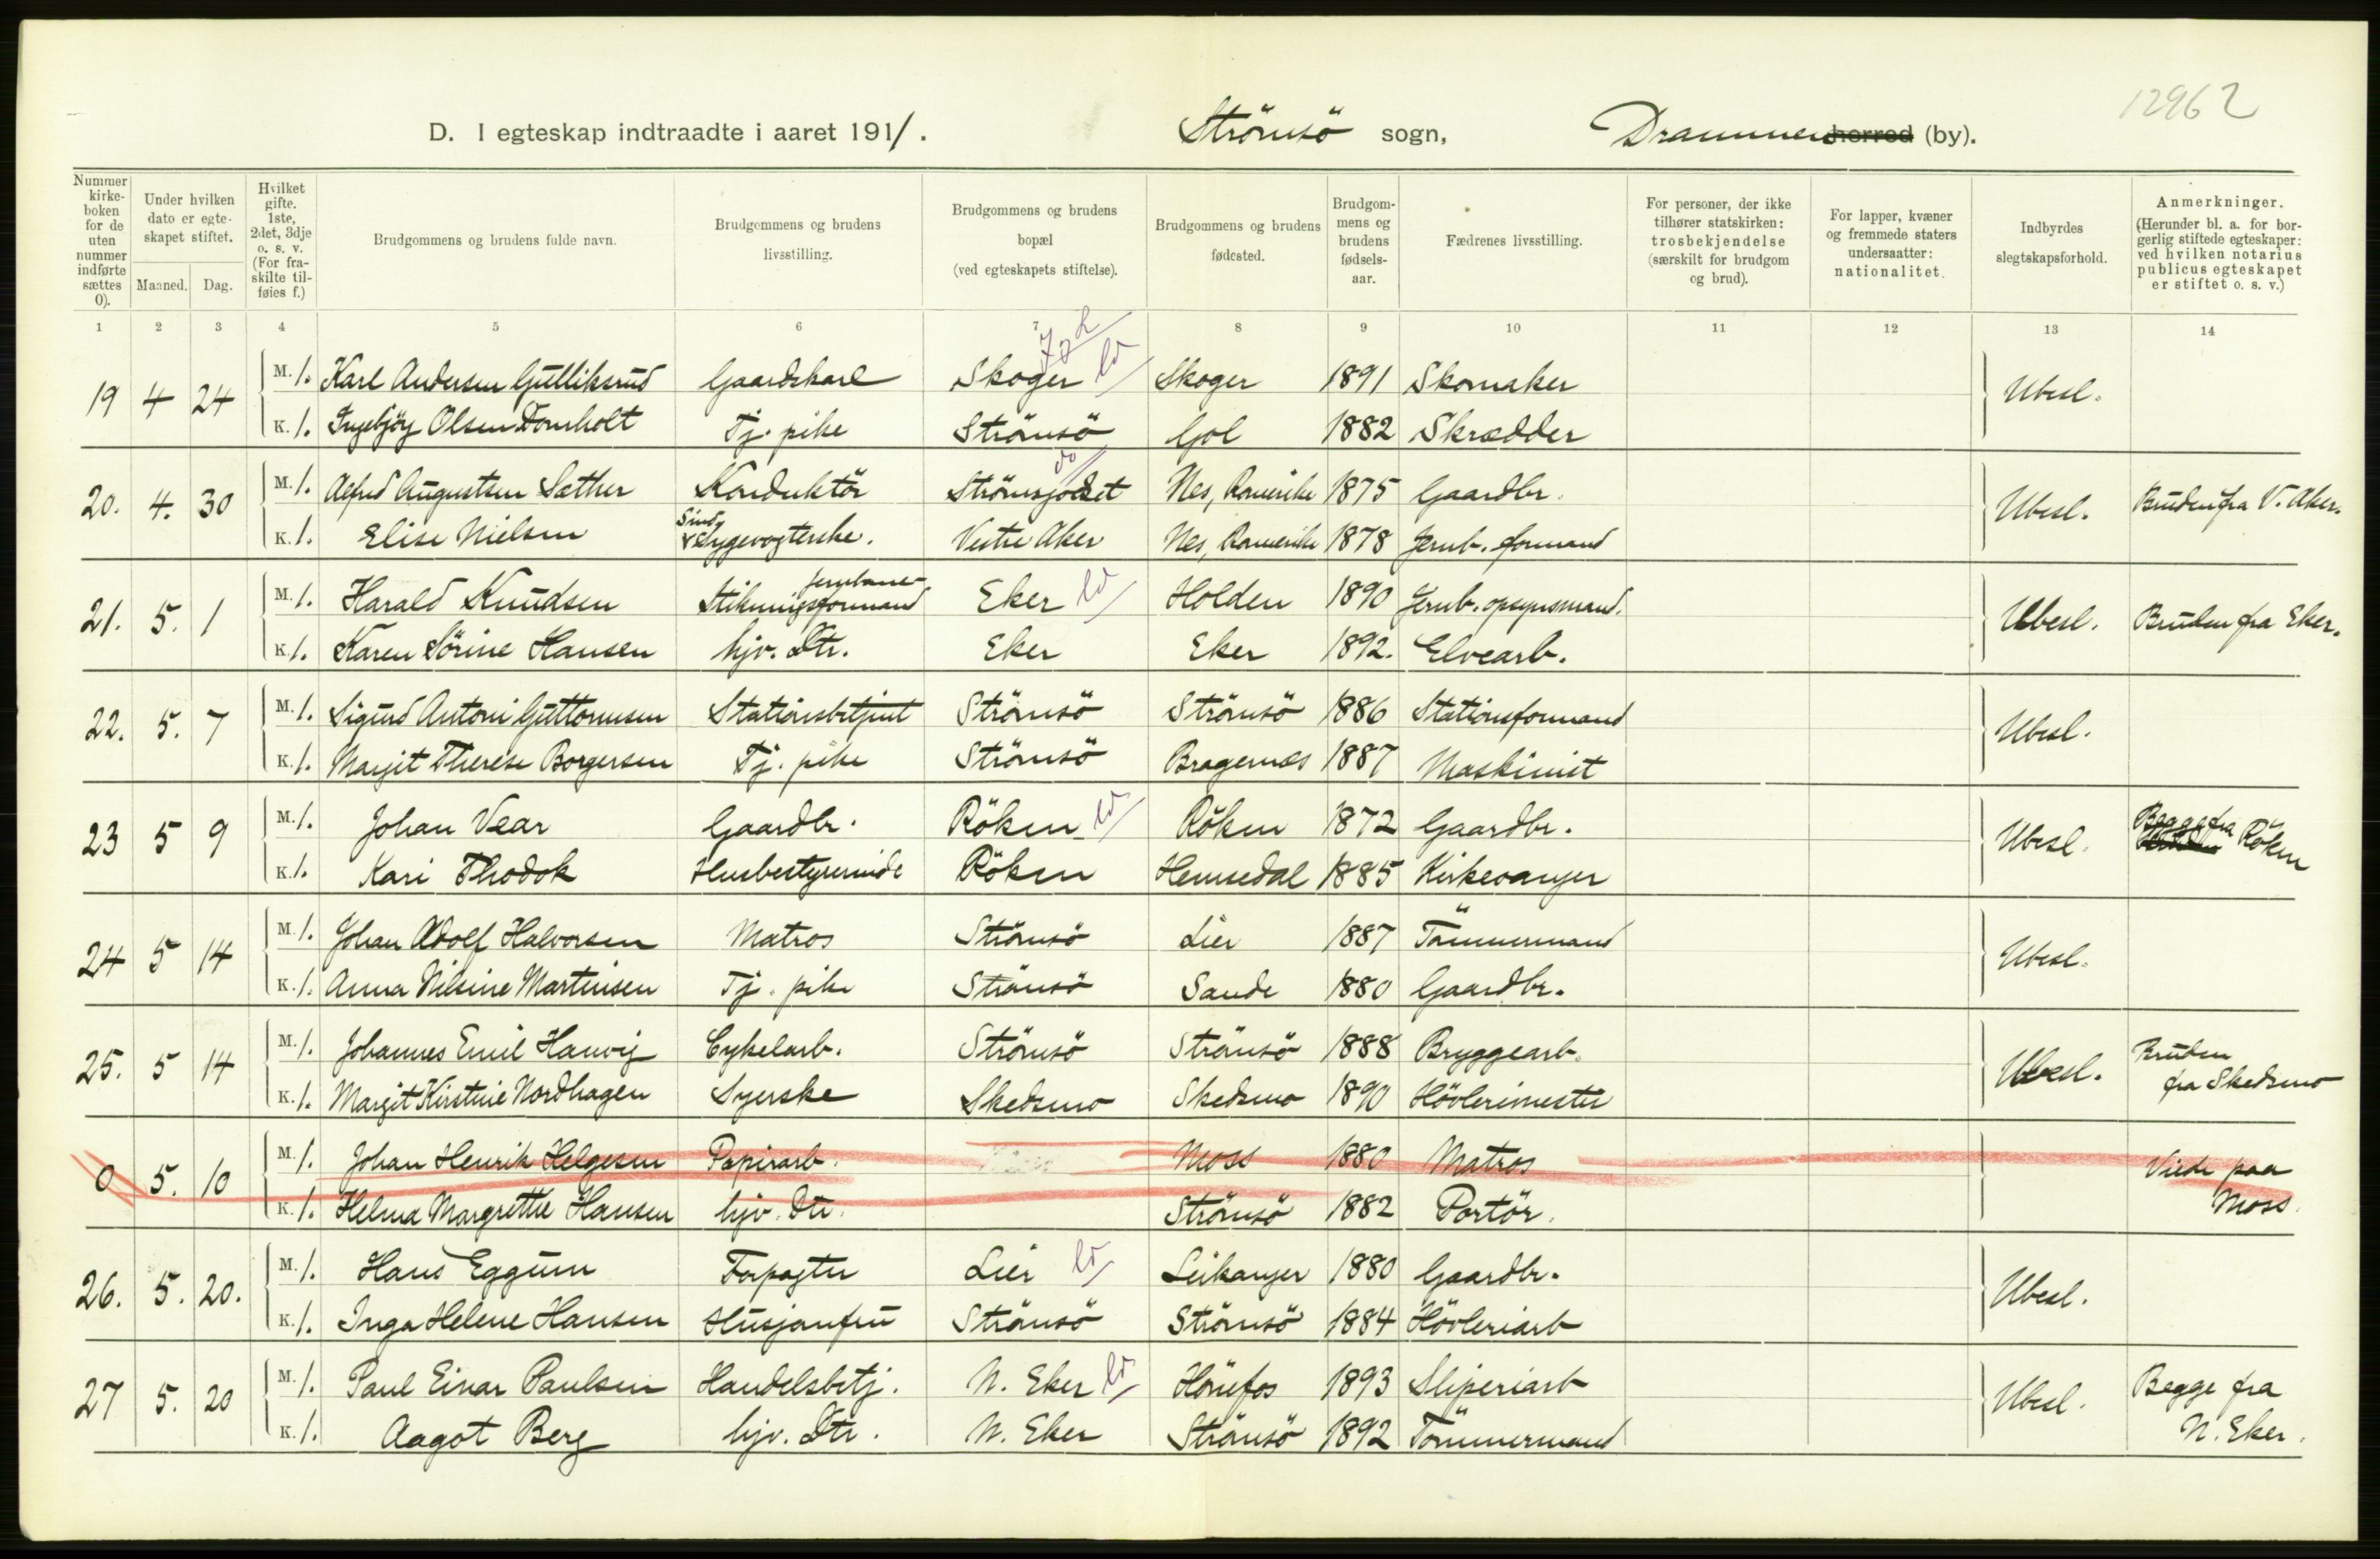 12962
D. I egteskap indtraadte i aaret 1911. Strömsö sogn, Drammen herred (by).
Nummer kirkeboken for de uten nummer indførte sættes 0).
Under hvilken dato er egteskapet stiftet.
Maaned. Dag.
Hvilket gifte. 1ste, 2det, 3dje o. s. v. (For fraskilte tilføies f.)
Brudgommens og brudens fulde navn.
Brudgommens og brudens livsstilling.
Brudgommens og brudens bopæl (ved egteskapets stiftelse).
Brudgommens og brudens fødested.
Brudgommens og brudens fødselsaar.
Fædrenes livsstilling.
For personer, der ikke tilhører statskirken: trosbekjendelse (særskilt for brudgom og brud).
For lapper, kvæner og fremmede staters undersaatter: nationalitet.
Indbyrdes slegtskapsforhold.
Anmerkninger. (Herunder bl. a. for borgerlig stiftede egteskaper: ved hvilken notarius publicus egteskapet er stiftet o. s. v.)
1 2 3 4 5 6 7 8 9 10 11 12 13 14
19 4 24 M. 1. Karl Andersen Gulliksrud Gaardskarl Skoger Skoger 1891 Skomaker Ubesl.
K. 1. Ingebjög Olsen Domholt Tj. pike Strömsö Gol 1882 Skrædder
20. 4. 30 M. 1. Alfred Augustsen Sæther Konduktör Strömsgodset Nes, Romerike 1875 Gaardbr. Ubesl. Bruden fra V. Aker.
K. 1. Elise Nielsen Sindsygevogterske. Vestre Aker Nes, Romerike 1878 Jernb. formand
21. 5. 1 M. 1. Harald Knudsen jernbane Stikningsformand Eker Holden 1890 Jernb. opsynsmand. Ubesl. Bruden fra Eker.
K. 1. Karen Sörine Hansen hjv. Dtr. Eker Eker 1892. Elvearb.
22. 5. 7 M. 1. Sigurd Antoni Guttormsen Stationsbetjent Strömsö Strömsö 1886 Stationsformand Ubesl.
K. 1. Margit Therese Borgersen Tj. pike Strömsö Bragernæs 1887 Maskinist
23 5 9 M. 1. Johan Vear Gaardbr. Röken Röken 1872 Gaardbr. Ubesl. Begge fra Röken
K. 1. Kari Thodok Husbestyrerinde Röken Hemsedal 1885 Kirkesanger
24 5 14 M. 1. Johan Adolf Halvorsen Matros Strömsö Lier 1887 Tömmermand Ubesl.
K. 1. Anna Nilsine Martinsen Tj. pike Strömsö Sande 1880 Gaardbr.
25. 5 14 M. 1. Johannes Emil Hanvig Cykelarb. Strömsö Strömsö 1888 Bryggearb. Ubesl. Bruden fra Skedsmo
K. 1. Margit Kirstine Nordhagen Syerske Skedsmo Skedsmo 1890 Hövlerimester
0 5. 10 M. 1. Johan Henrik Helgesen Papirarb. Moss 1880 Matros Viede paa Moss.
K. 1. Helma Margrethe Hansen hjv. Dtr. Strömsö 1882 Portör.
26. 5. 20. M. 1. Hans Eggum Forpagter Lier Leikanger 1880 Gaardbr. Ubesl.
K. 1. Inga Helene Hansen Husjomfru Strömsö Strömsö 1884 Hövleriarb
27 5. 20 M. 1. Paul Einar Paulsen Handelsbetj. N. Eker Hönefos 1893 Sliperiarb Ubesl. Begge fra N. Eker.
K. 1. Aagot Berg hjv. Dtr. N. Eker Strömsö 1892 Tömmermand